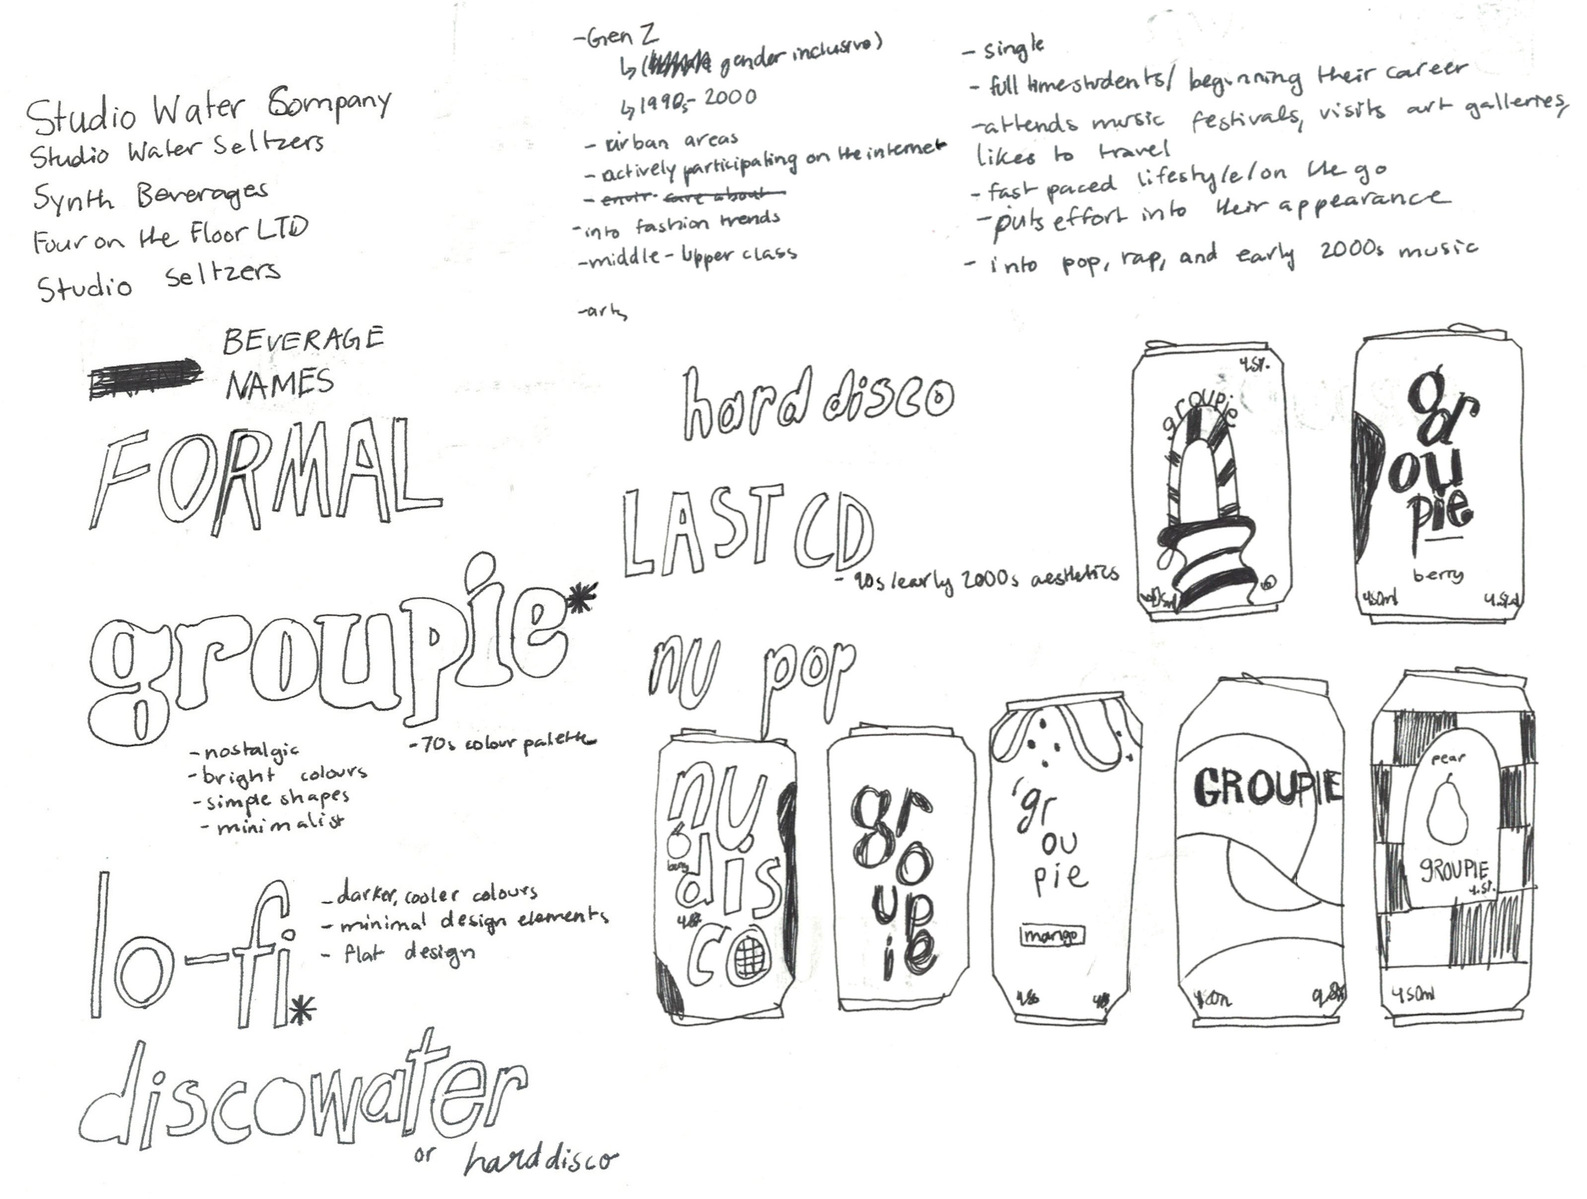 Studio Water Company
Studio Water Seltzers
Synth Beverages
Four on the Floor LTD
Studio Seltzers
-Gen Z
↳ ( gender inclusive)
↳ 1990s- 2000
- urban areas
- actively participating on the internet
- envir. care about
-into fashion trends
-middle-Upper class
-arts
- single
- full time students/ beginning their career
-attends music festivals, visits art galleries,
likes to travel
- fast paced lifestyle/on the go
-puts effort into their appearance
- into pop, rap, and early 2000s music
BEVERAGE
NAMES
FORMAL
groupie*
-nostalgic
-bright colours
-simple shapes
-minimalist
-70s colour palette
lo-fi*
-darker, cooler colours
-minimal design elements
- flat design
discowater
or harddisco
hard disco
LAST CD
- 90s/early 2000s aesthetics
nu pop
4.5%.
groupie
gr
ou
pie
berry
450ml
nu
dis
co
gr
o
up
ie
gr
ou
pie
mango
GROUPIE
pear
GROUPIE
4.5%.
450ml